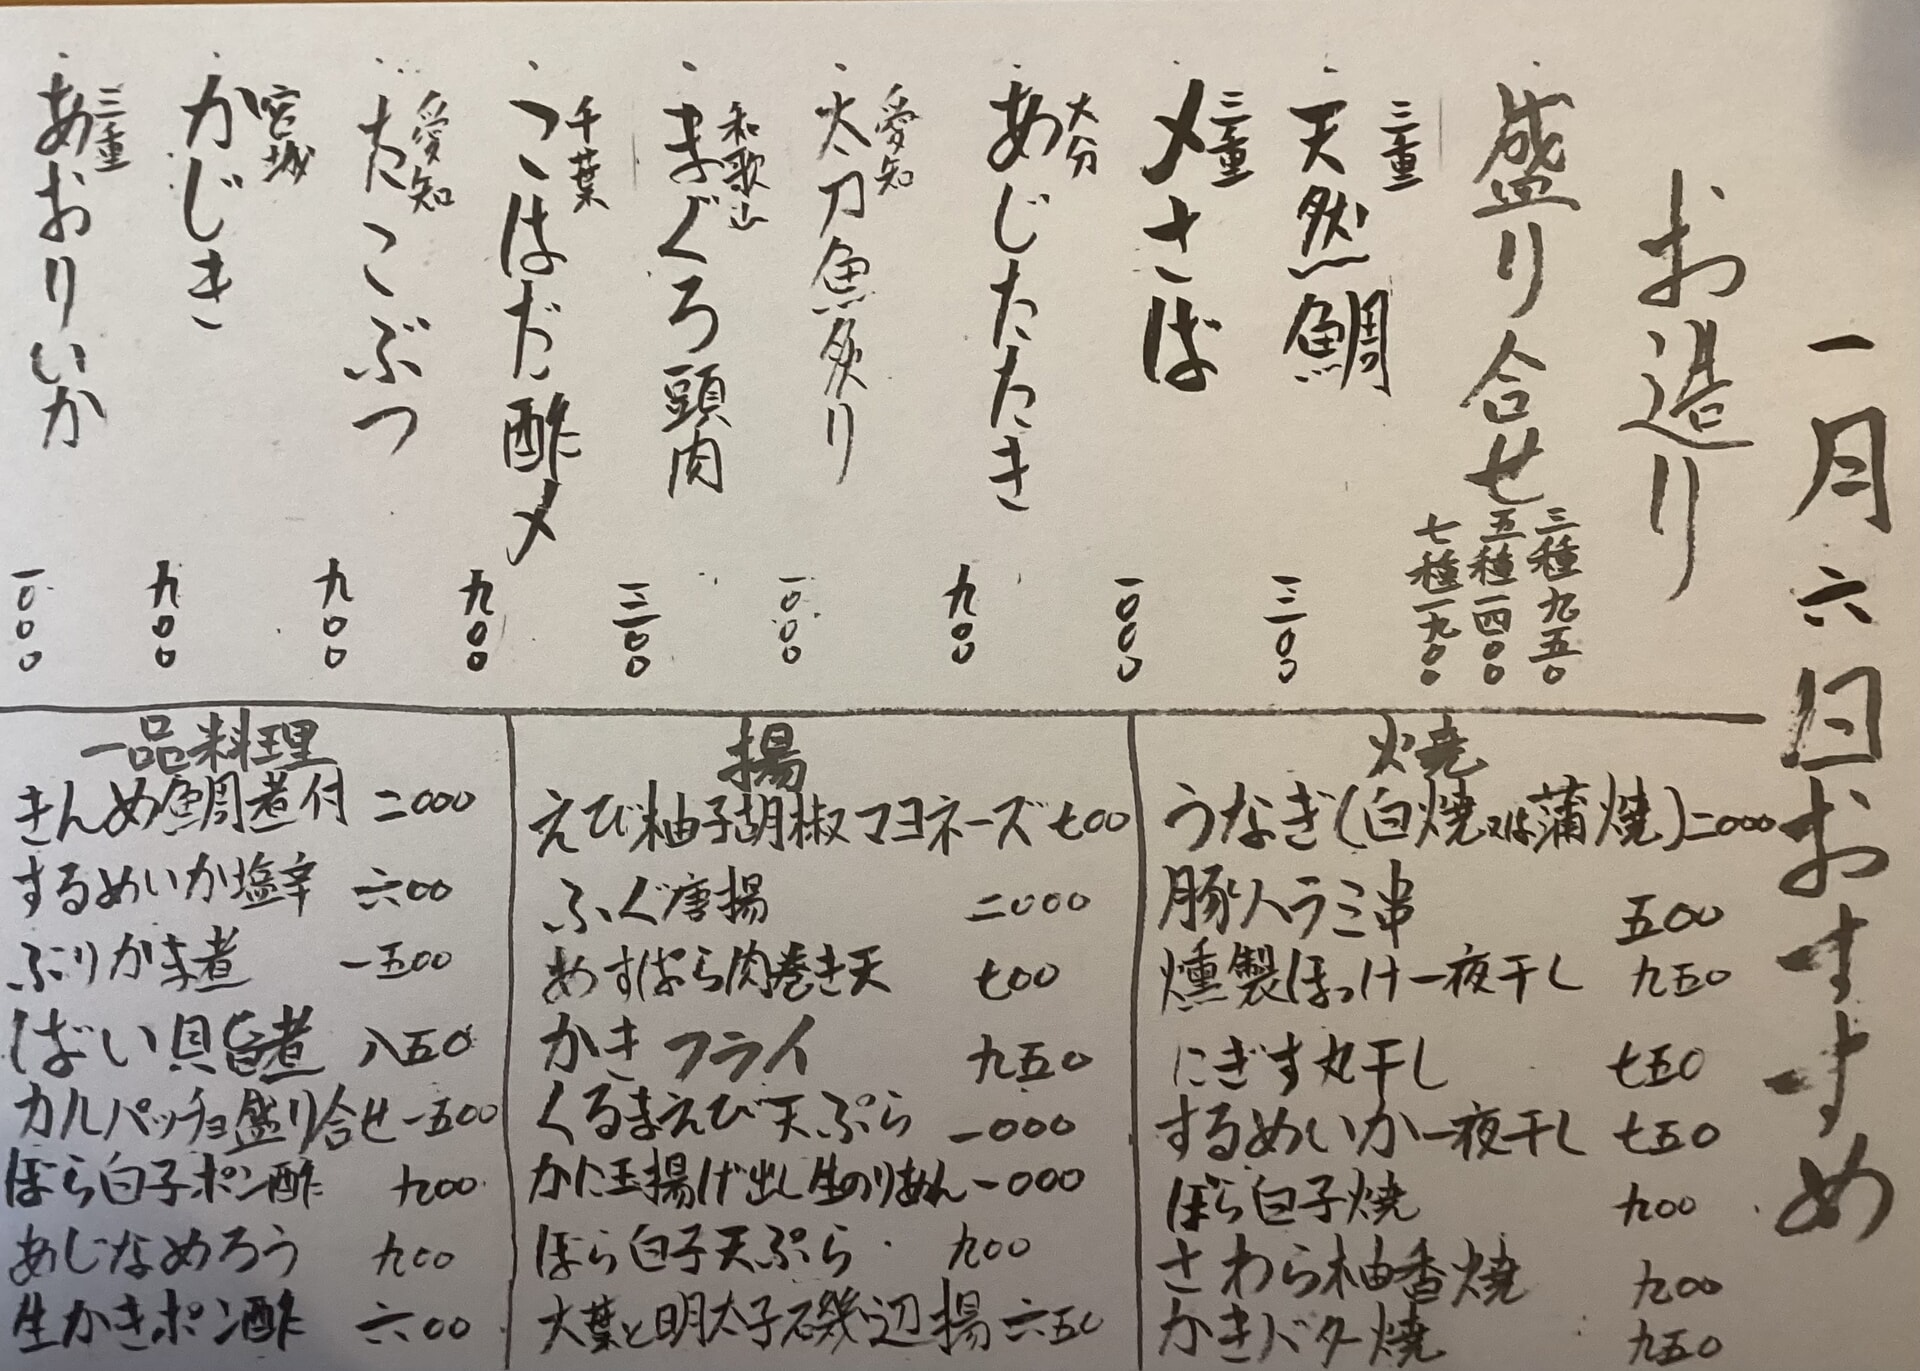 一月六日おすすめ
お造り
盛り合せ
三種九五〇
五種一四〇〇
七種一九〇〇
三重
天然鯛 一三〇〇
三重
〆さば 一〇〇〇
大分
あじたたき 九〇〇
愛知
太刀魚炙り 一〇〇〇
和歌山
まぐろ頭肉 一三〇〇
千葉
こはだ酢〆 九〇〇
愛知
たこぶつ 九〇〇
宮城
かじき 九〇〇
三重
あおりいか 一〇〇〇
焼
うなぎ(白焼又は蒲焼) 二〇〇〇
豚ハラミ串 五〇〇
燻製ほっけ一夜干し 九五〇
にぎす丸干し 七五〇
するめいか一夜干し 七五〇
ぼら白子焼 九〇〇
さわら柚香焼 九〇〇
かきバター焼 九五〇
揚
えび柚子胡椒マヨネーズ 七〇〇
ふぐ唐揚 二〇〇〇
あすぱら肉巻き天 七〇〇
かきフライ 九五〇
くるまえび天ぷら 一〇〇〇
かに玉揚げ出し生のりあん 一〇〇〇
ぼら白子天ぷら 九〇〇
大葉と明太子磯辺揚 六五〇
一品料理
きんめ鯛煮付 二〇〇〇
するめいか塩辛 六〇〇
ぶりかま煮 一五〇〇
ばい貝旨煮 八五〇
カルパッチョ盛り合せ 一五〇〇
ぼら白子ポン酢 九〇〇
あじなめろう 九〇〇
生かきポン酢 六〇〇